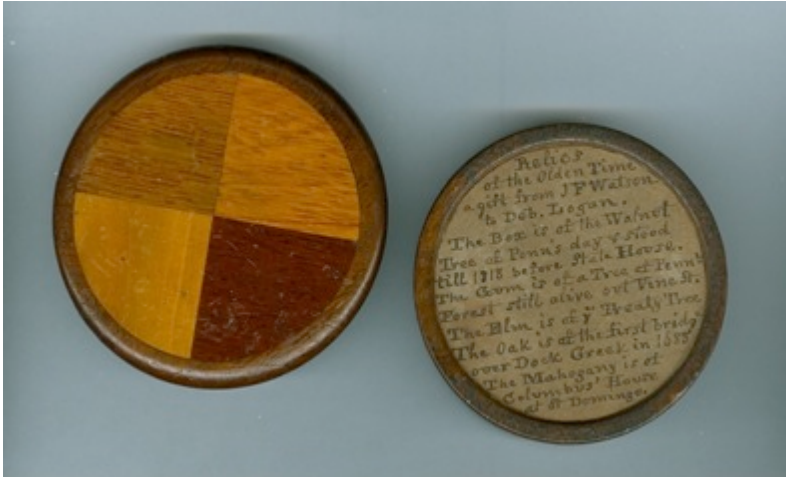 Relics
of the Olden Time
a gift from J F Watson
to Deb. Logan.
The Box is of the Walnut
Tree of Penn's day & stood
till 1818 before State House.
The Gum is of a Tree of Penn's
Forest still alive out Vine St.
The Elm is of ye Treaty Tree
The Oak is of the first bridge
over Dock Creek in 1683
The Mahogany is of
Columbus' House
at St Domingo.